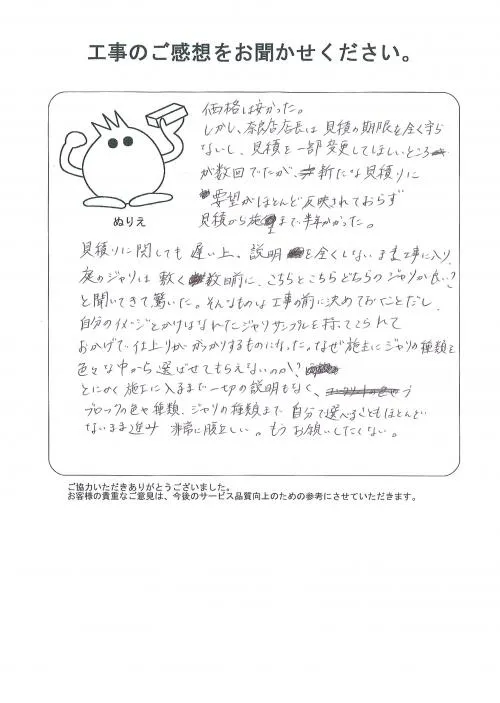 工事のご感想をお聞かせください。
価格は安かった。
しかし、奈良店店長は見積の期限を全く守ら
ないし、見積を一部変更してほしいところ
が数回でたが、新たな見積りに
要望がほとんど反映されておらず
見積から施まで半年かかった。
ぬりえ
見積りに関しても遅い上、説明を全くしないまま工事に入り、
庭のジャリは敷く数日前に、こちらとこちらどちらのジャリが良い?
と聞いてきて、驚いた。そんなものは工事の前に決めておくことだし、
自分のイメージとかけはなれたジャリサンプルを持ってこられて
おかげで仕上りががっかりするものになった。なぜ施主にジャリの種類を
色々な中から選ばせてもらえないのか?
とにかく施工に入るまで一切の説明もなく、
ブロックの色や種類、ジャリの種類まで自分で選べることもほとんど
ないまま進み 非常に腹立しい。もうお願いしたくない。
ご協力いただきありがとうございました。
お客様の貴重なご意見は、今後のサービス品質向上のための参考にさせていただきます。